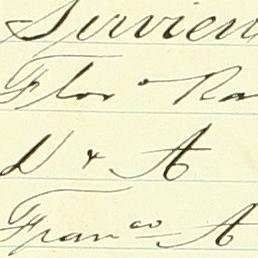 Servien
Flor º Ra
D & A
Fran co A